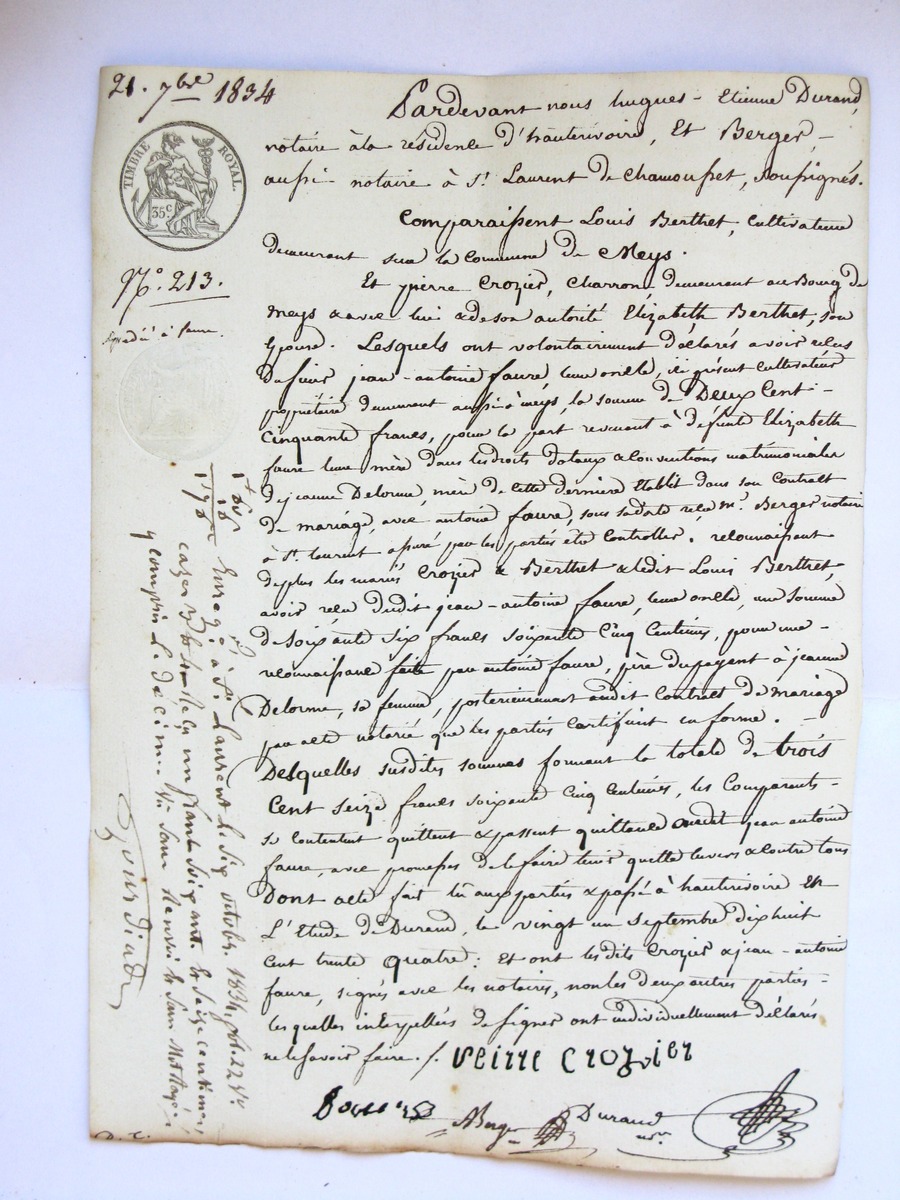 21. 7bre 1834
TIMBRE ROYAL.
35c
N°. 213.
Pardevant nous hugues-Etienne Durand,
notaire à la résidence d'hauterivoire, Et Berger,
aussi notaire à St. Laurent de Chamousset, soussignés.
Comparaissent Louis Berthet, Cultivateur
demeurant sur la Commune de Meys.
Et pierre Crozier, Charron, demeurant au Bourg de
meys & avec lui & de son autorité Elizabeth Berthet, son
Epouse. Lesquels ont volontairement déclarés avoir reçus
du sieur jean-antoine faure, leur oncle, ici présent Cultivateur
propriétaire demeurant aussi à meys, la somme de Deux Cent
Cinquante francs, pour la part revenant à défunte Elizabeth
faure leur mère dans les droits dotaux & Conventions matrimoniales
de jeanne Delorme, mère de cette dernière Etablit dans son Contrat
de mariage, avec antoine faure, sous sa date reçu me. Berger notaire
à St. laurent assuré par les parties être Controllés. reconnaissant
de plus les mariés Crozier & Berthet & ledit Louis Berthet,
avoir reçu dudit jean-antoine faure, leur oncle, une somme
de soixante six francs soixante Cinq Centimes, pour une
reconnaissance faite par antoine faure, père du payent à jeanne
Delorme, sa femme, posterieurement audit Contrat de mariage
par acte notarié que les parties Certifient en forme.
Desquelles susdites sommes formant la totale de trois
Cent seize francs soixante Cinq Centimes, les Comparants
se Contentent quittent & passent quittance audit jean antoine
faure, avec promesse de le faire tenir quitte envers & Contre tous
Dont acte fait lu aux parties & passé à hauterivoire En
L'Etude de Durand, le vingt un septembre dix huit
Cent trente quatre: Et ont lesdits Crozier & jean-antoine
faure, signés avec les notaires, non les deux autres parties
lesquelles interpellées de signer ont individuellement déclarés
ne le savoir faire. /.
Peirre Crozier
Berger
Durand
nre.
Enregé. à St. Laurent le six octobre 1834
un franc soixante et seize centimes
y compris le décime